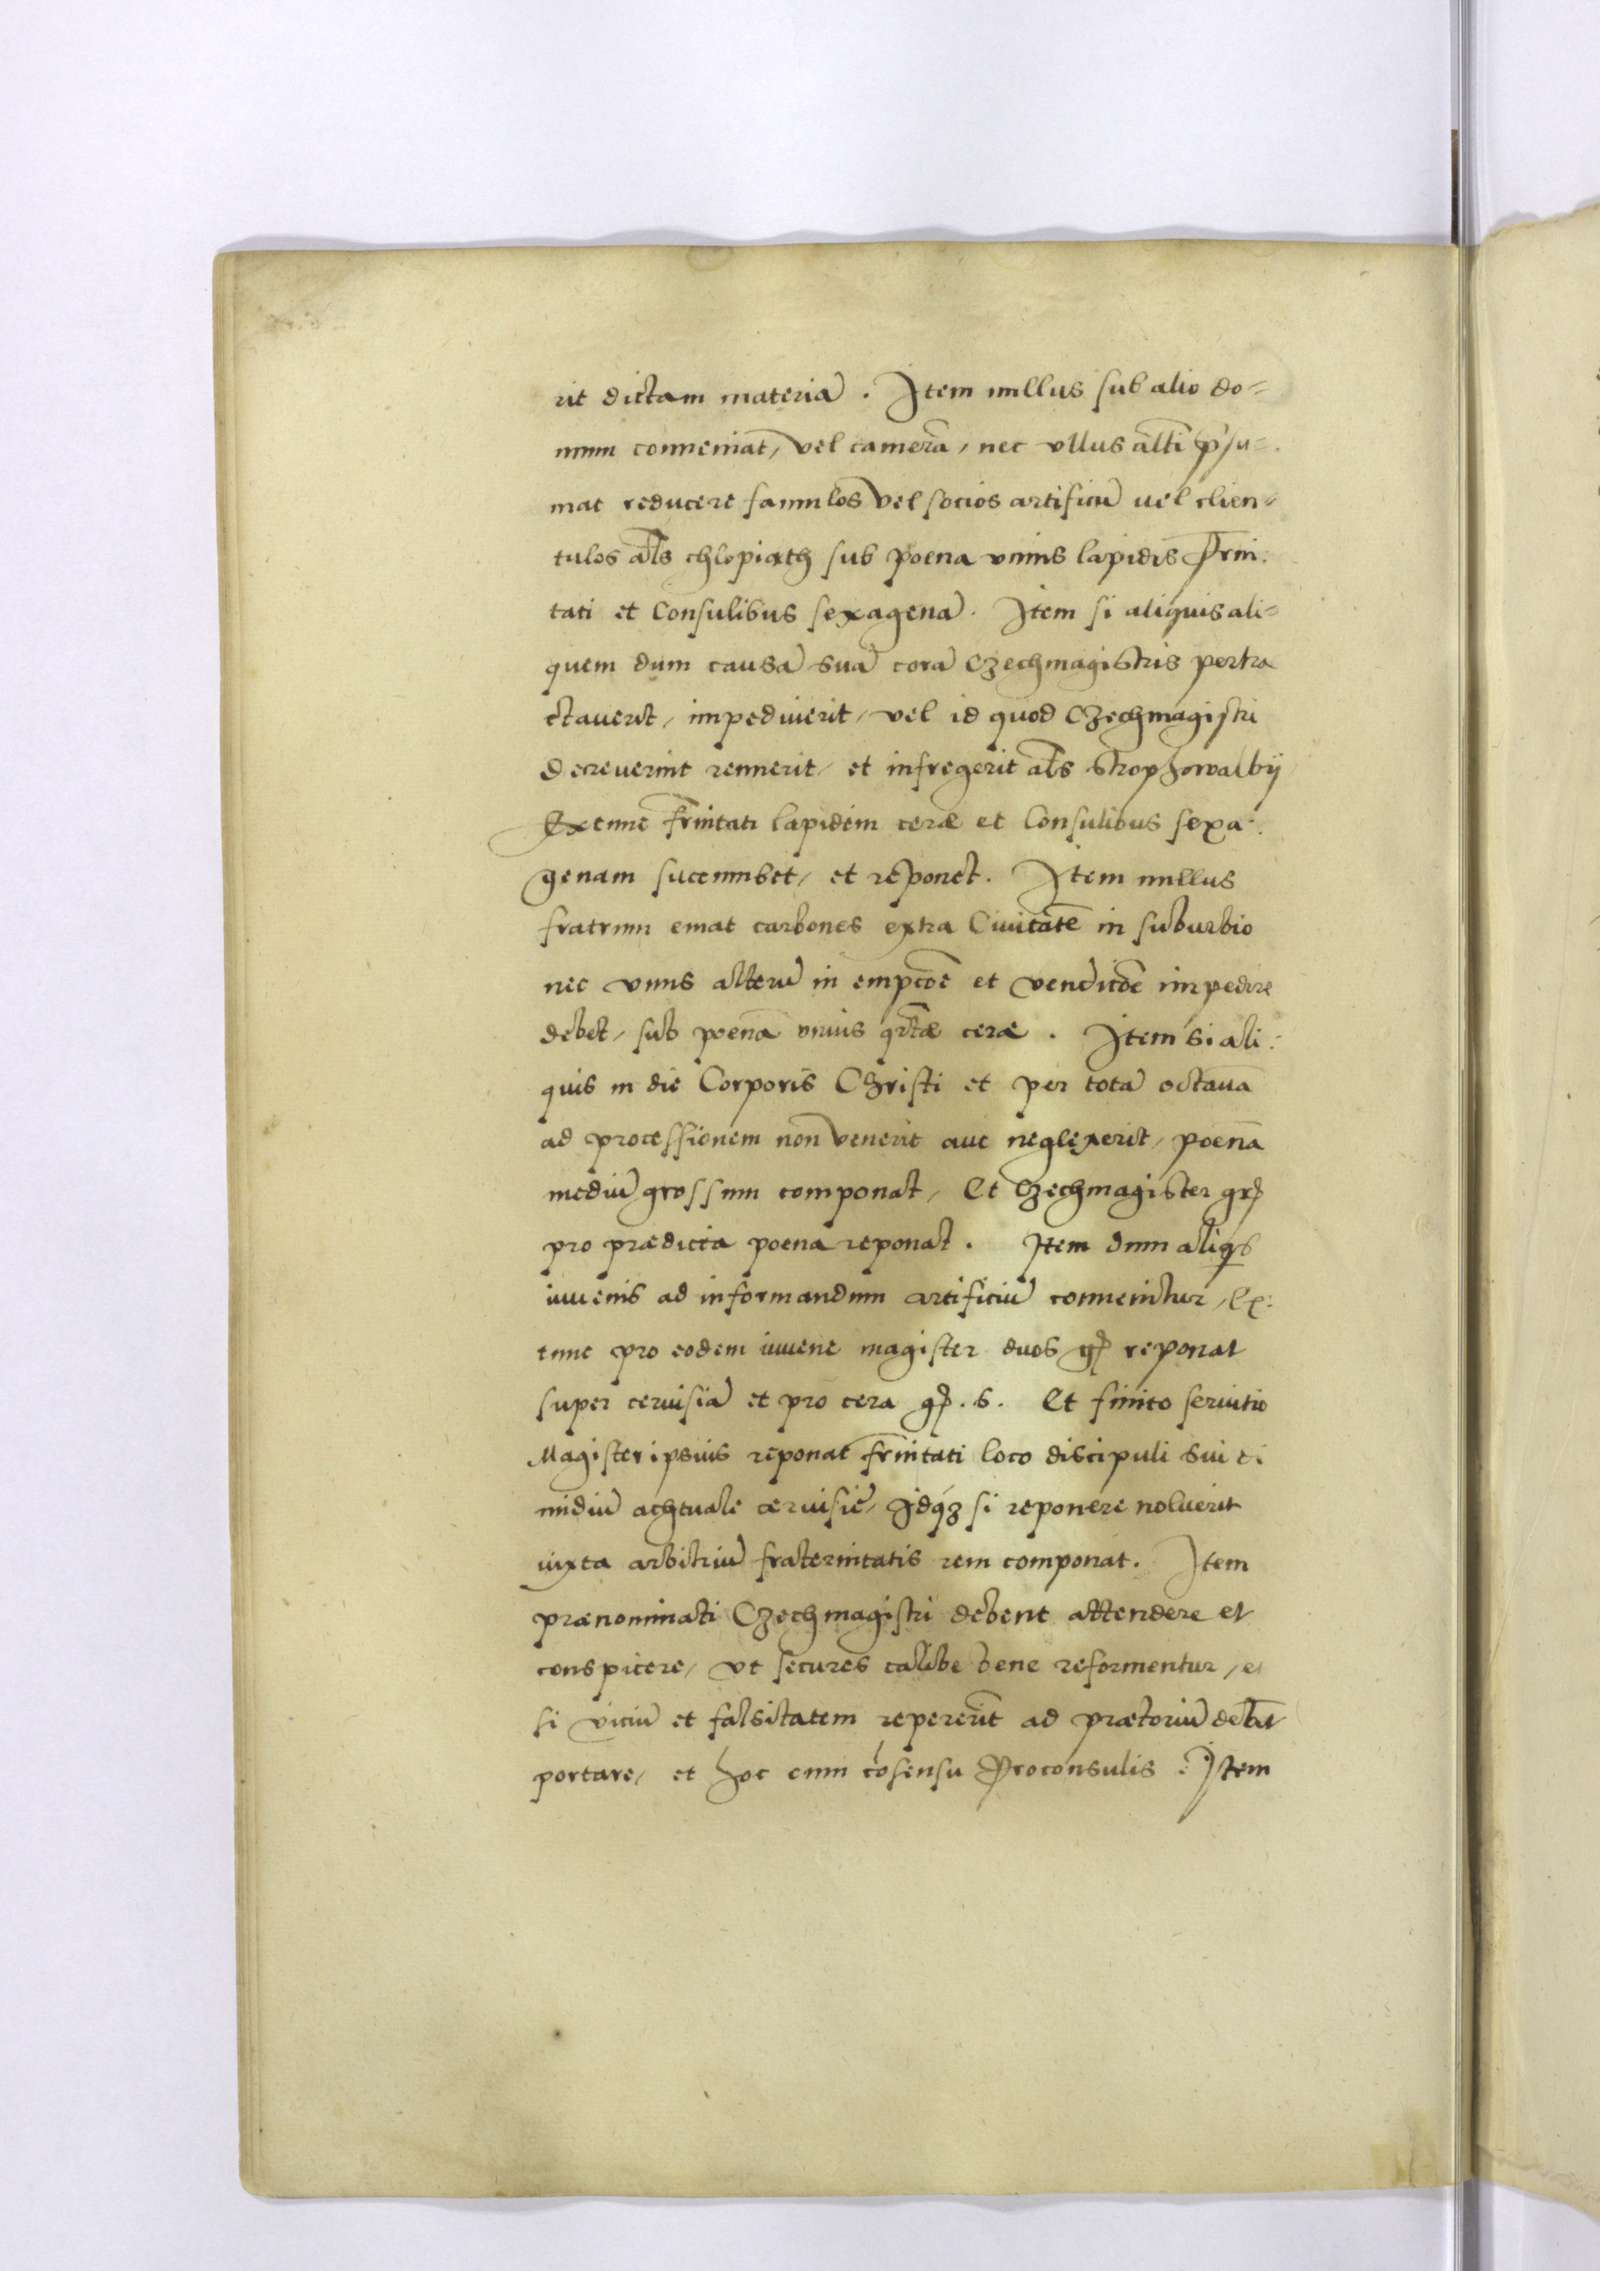 rit dictam materiā. Item nullus sub alio do=
mum conueniat, vel camerā, nec vllus altī p̄su=
mat reducere famulos vel socios artificū vel clien=
tulos als chlopiąth sub poena vnius lapidis Frni:
tati et Consulibus sexagenā. Item si aliquis ali=
quem dum causā suā corā Czechmagistris pertra
ctauerit, impediuerit, vel id quod Czechmagistri
decreuerint rennerit, et infregerit als
Extunc frnitati lapidem ceræ et Consulibus sexa:
genam succumbet, et reponet. Item nullus
fratrum emat carbones extra Ciuitatē in suburbio
nec vnus alterū in empcōē et vendicōē impedire
debet, sub poenā vnius qrtæ ceræ. Item si ali:
quis in die Corporis Christi et per totā octauā
ad processionem non venerit aut neglexerit, poenā
mediū grossum componat, Et Czechmagister gr
pro prædicta poena reponat. Item dum aliqs
iuuenis ad informandum artificiū conuenitur, Ex:
tunc pro eodem iuuene magister duos gr reponat
super ceruisiā et pro cera gr. s. Et finito seruitio
Magister ipsius reponat frnitati loco discipuli sui di
midiū achtuale ceruisiē, Idq3 si reponere noluerit
iuxta arbitriū fraternitatis rem componat. Item
prænominati Czechmagistri debent attendere et
conspicere, vt secures calibe bene reformentur, et
si viciū et falsitatem repererīt ad prætoriū debēt
portare, et hoc cum cōsensu Proconsulis. Item